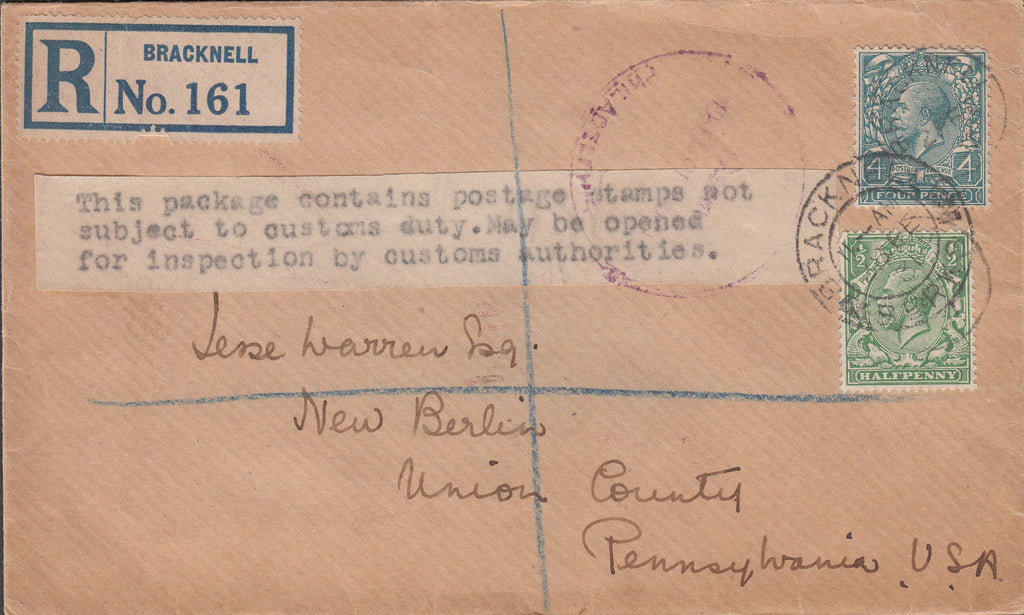 R BRACKNELL
No. 161
This package contains postage stamps not
subject to customs duty.May be opened
for inspection by customs authorities.
PHILADELPHIA
4 4
FOUR PENCE
BRACKNELL
½ ½
HALFPENNY
Jesse Warren Esq.
New Berlin
Union County
Pennsylvania U.S.A.